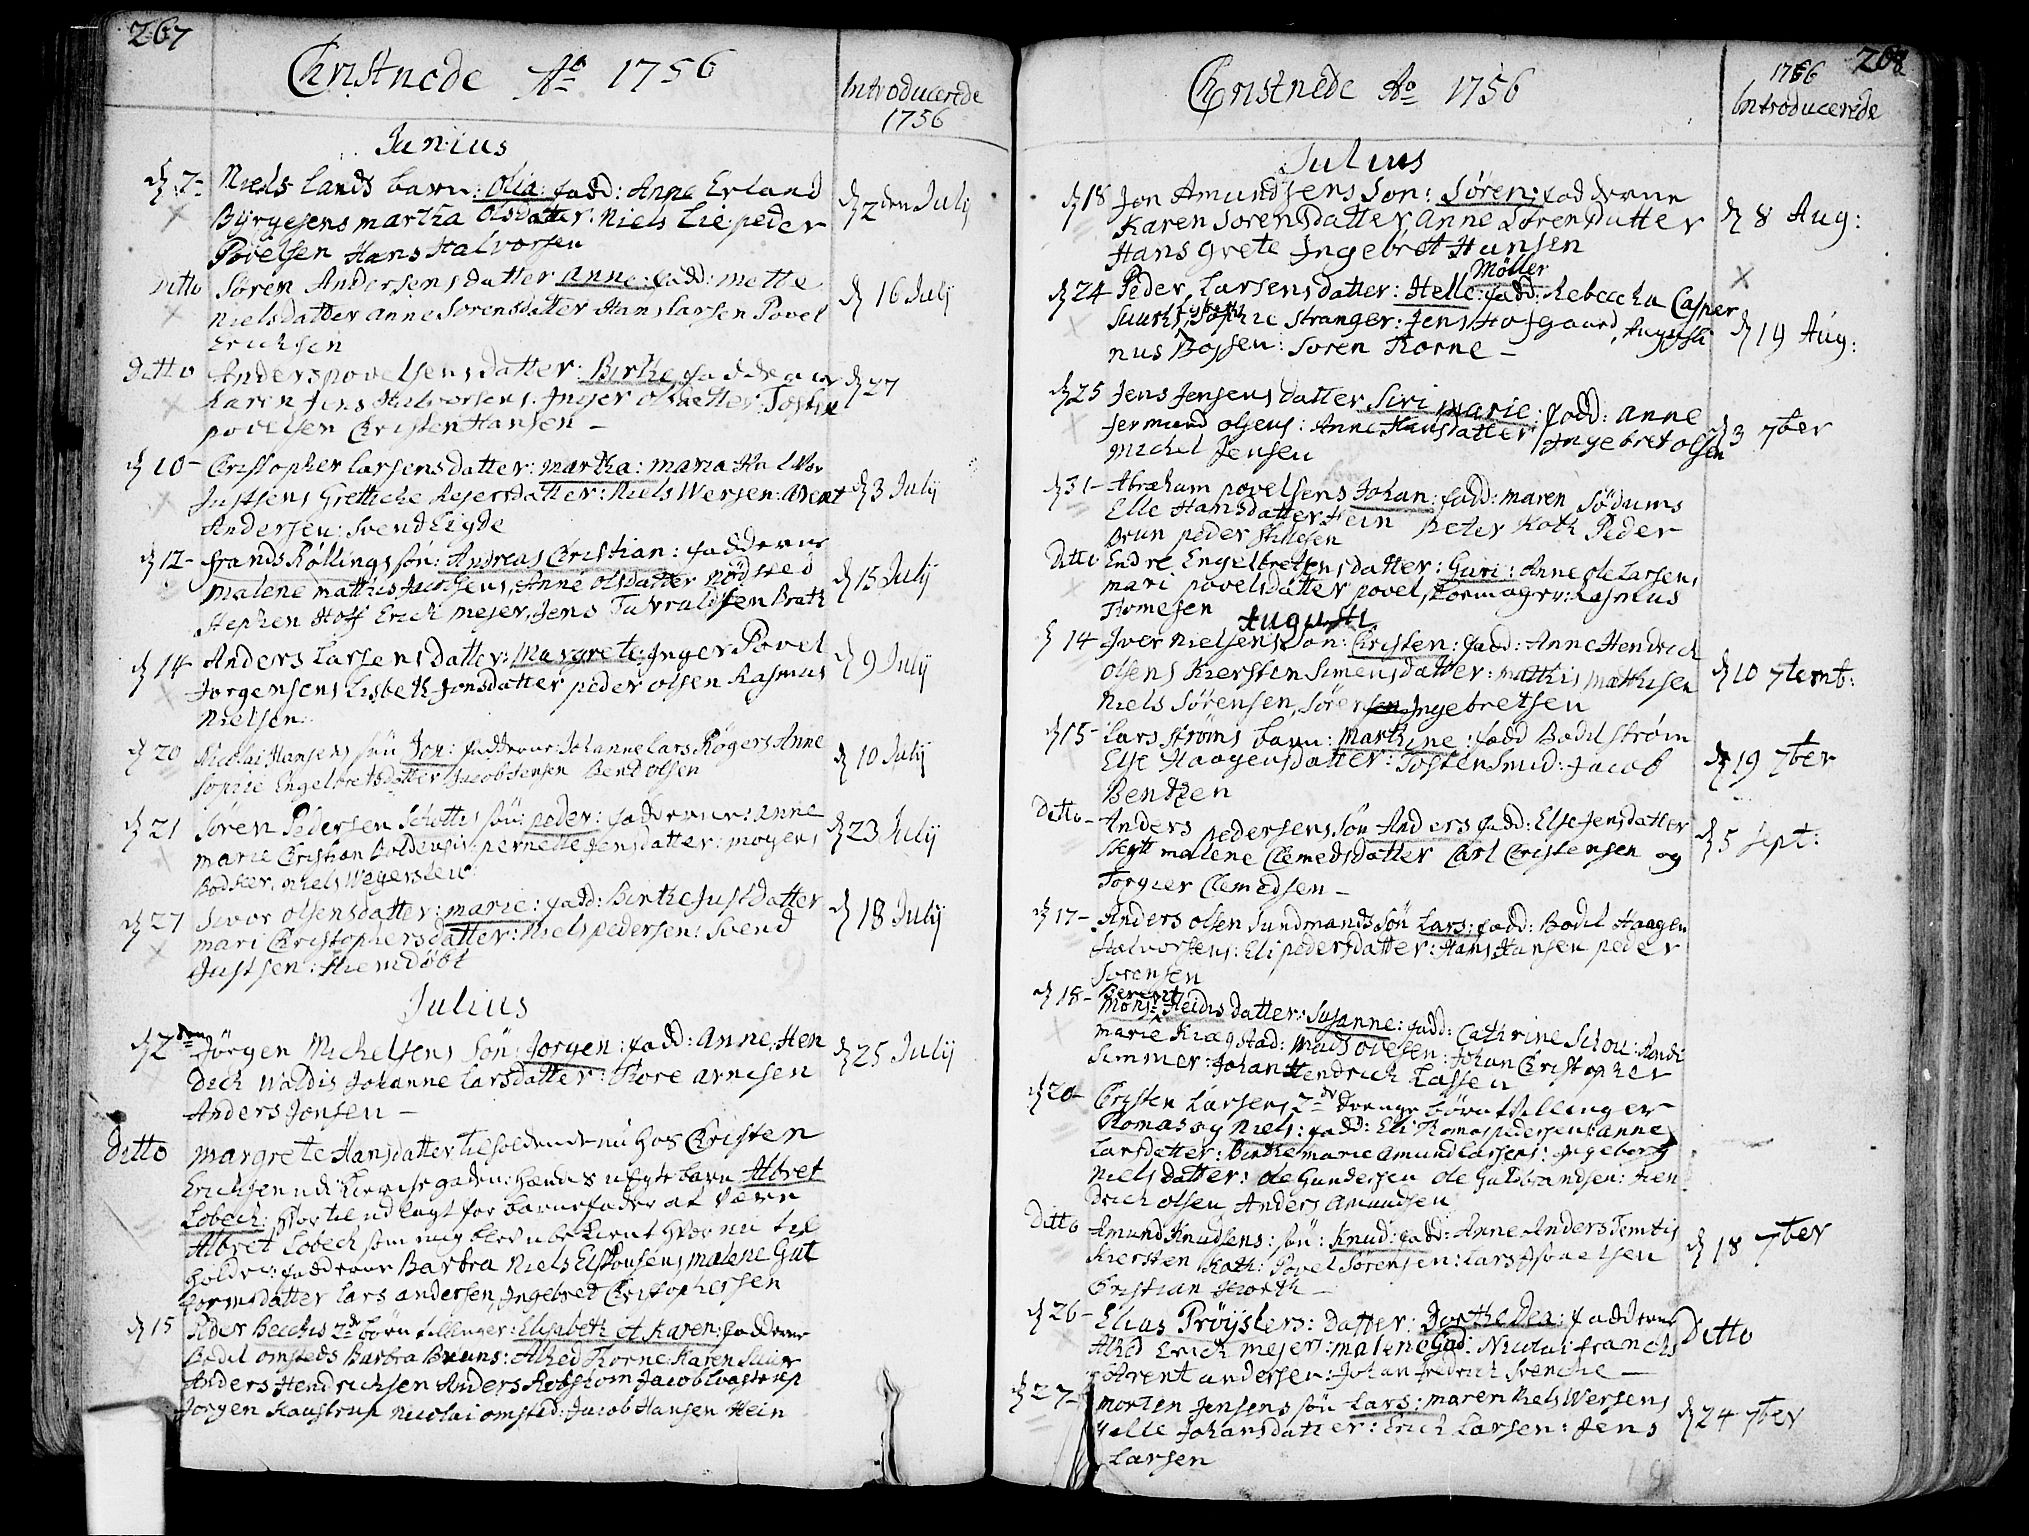 267
Christnede Ao 1756
Introducerede
1756
Junius
d 7- Niels Lands barn: Olia: fadd: Anne Erland
Byrgesens martha Olsdatter: Niels Lie: peder
Povelsen Hans Halvorsen
d 2den July
Ditto Søren Andersens datter Anne: fadd: mette
Nielsdatter Anne Sørensdatter Hans Larsen Povel
Ericksen
d 16 July
Ditto Anders povelsens datter: Birthe fadderne
Karen Jens Halvorsens. Inger olsdatter: Tosten
povelsen Christen Hansen -
d 27
d 10- Christopher Larsens datter: martha: maria Halvor
Justsens Grethche Rejersdatter: Niels Wersen: Arent
Andersen: Svend Eigde
d 3 July
d 12- frands Røllings søn: Andreas Christian: fadderne
malene mathis Jacobsens, Anne olsdatter
Stephen Hoff Erich mejer, Jens Brath
d 15 July
d 14- Anders Larsens datter: Margrete: Inger Povel
Jørgensens Lisbeth Jonsdatter peder olsen Rasmus
Nielsen.
d 9 July
d 20 Nicolai Hansens søn Jon: fadderne: Johanne Lars Røgers Anne
Sophie Engelbretsdatter Jacob Jensen Bend olsen
d 10 July
d 21 Søren Pedersen Schottis søn: peder: fadderne: Anne
marie Christian Boldevigs: pernette Jensdatter: mogens
Bødker. Niels Wegersløv
d 23 July
d 27 Sivor olsens datter: marie: fadd: Birthe Justdatter
mari Christophersdatter: Niels pedersen: Svend
Justsen: Hiemdøbt
d 18 July
Julius
d 2den Jørgen Michelsens Søn: Jørgen: fadd: Anne Hen
drich Waldis Johanne Larsdatter: Thore Arnesen
Anders Jonsen -
d 25 July
Ditto margrete Hansdatter tilholdende nu hos Christen
Ericksen udi Kierchegaden: hendes uægte barn Albret
Lobech: hvortil udlagt for barnefader at være
Albret Lobech som mig blev ubekiennt hvor nu til
holder: fadderne Barbra Niels Elstønsens malene Gut
tormsdatter Lars andersen, Ingebret Christophersen
d 15 Peder Becchs 2de børn tvillinger: Elisabeth et Karen: fadderne
Bodil omsteds Barbra Bruns: Alhed Thorne Karen Suur
Anders Hendrichsen Anders Robsom Jacob Coastrup
Jørgen Kaustrup Nicolai omsted: Jacob Hansen Hein
268
Christnede Ao 1756
1756
Introducerede
Julius
d 18 Jon Amundsens Søn: Søren: fadderne
Karen Sørensdatter, Anne Sørensdatter
Hans Grete Ingebret Hansen
d 8 Aug:
d 24 Peder Larsens datter: Helle: fadd: Rebeccha Casper
Møller
Suurs, Sophie Stranger: Jens Hofgaard, Augusti
nus Bojsen: Søren Thorne -
d 19 Aug:
d 25 Jens Jensens datter Siri marie: fadd: Anne
Jermund olsens: Anne Hansdatter Ingebret olsen
Michel Jensen
d 3 7ber
d 31- Abraham povelsens Johan: fadd: maren Sødums
Elle Hansdatter Hein Peter Koth Peder
Brun peder
Ditto Endre Engelbretsens datter: Guri: Anne ole Larsens
mari povelsdatter povel, Rasmus
Thomesen
Augusti
d 14- Iver Nielsens Søn: Christen: fadd: Anne Hendrich
olsens Kiersten Simensdatter: mathis mathisen
Niels Sørensen, Søren Ingebretsen
d 10 7temb:
d 15- Lars Strøms barn: Marthine: fadd Bodil Strøm
Else Haagensdatter: Tosten Smid: Jacob
Bentzen
d 19 7ber
Ditto- Anders pedersens søn Anders fadd: Else Jensdatter
Stegt malene Clemedsdatter Carl Christensen og
Torgier Clemedsen -
d 5 Sept:
d 17- Anders olsen Sundmands søn Lars: fadd: Bodil Haagen
Halvorsens: Eli pedersdatter: Hans Hansen peder
Sørensen
d 18- Monsr Heidis datter: Susanne: fadd: Cathrine Schou: Andi
Berent
marie Kragstad: mads ovesen: Johan Christopher
Simmer: Johan Hendrick Lassen
d 20- Christen Larsens 2de drenge børn tvillinger
Thomas og Niels: fadd: Eli Thomas pedersens: anne
Larsdatter: Birthe marie Amund Larsens: Ingeborg
Nielsdatter: ole Gundersen ole Gulbrandsen: Hen
drich olsen Anders Amundsen
Ditto Amund Knudsens: søn: Knud: fadd: Anne Anders Temtis
Kiersten Koth: Povel Sørensen: Lars
Christian Horth -
d 18 7ber
d 26- Elias Prøysters: Datter: Dorthe Dea: fadderne
Alhed Erich mejer: malene Gad: Nicolai franchs
Arent andersen: Johan fredrich Svenche -
Ditto
d 27- Morten Jensens søn Lars: maren Niels Wersens
Helle Johansdatter: Erich Larsen: Jens
Larsen
d 24 7ber